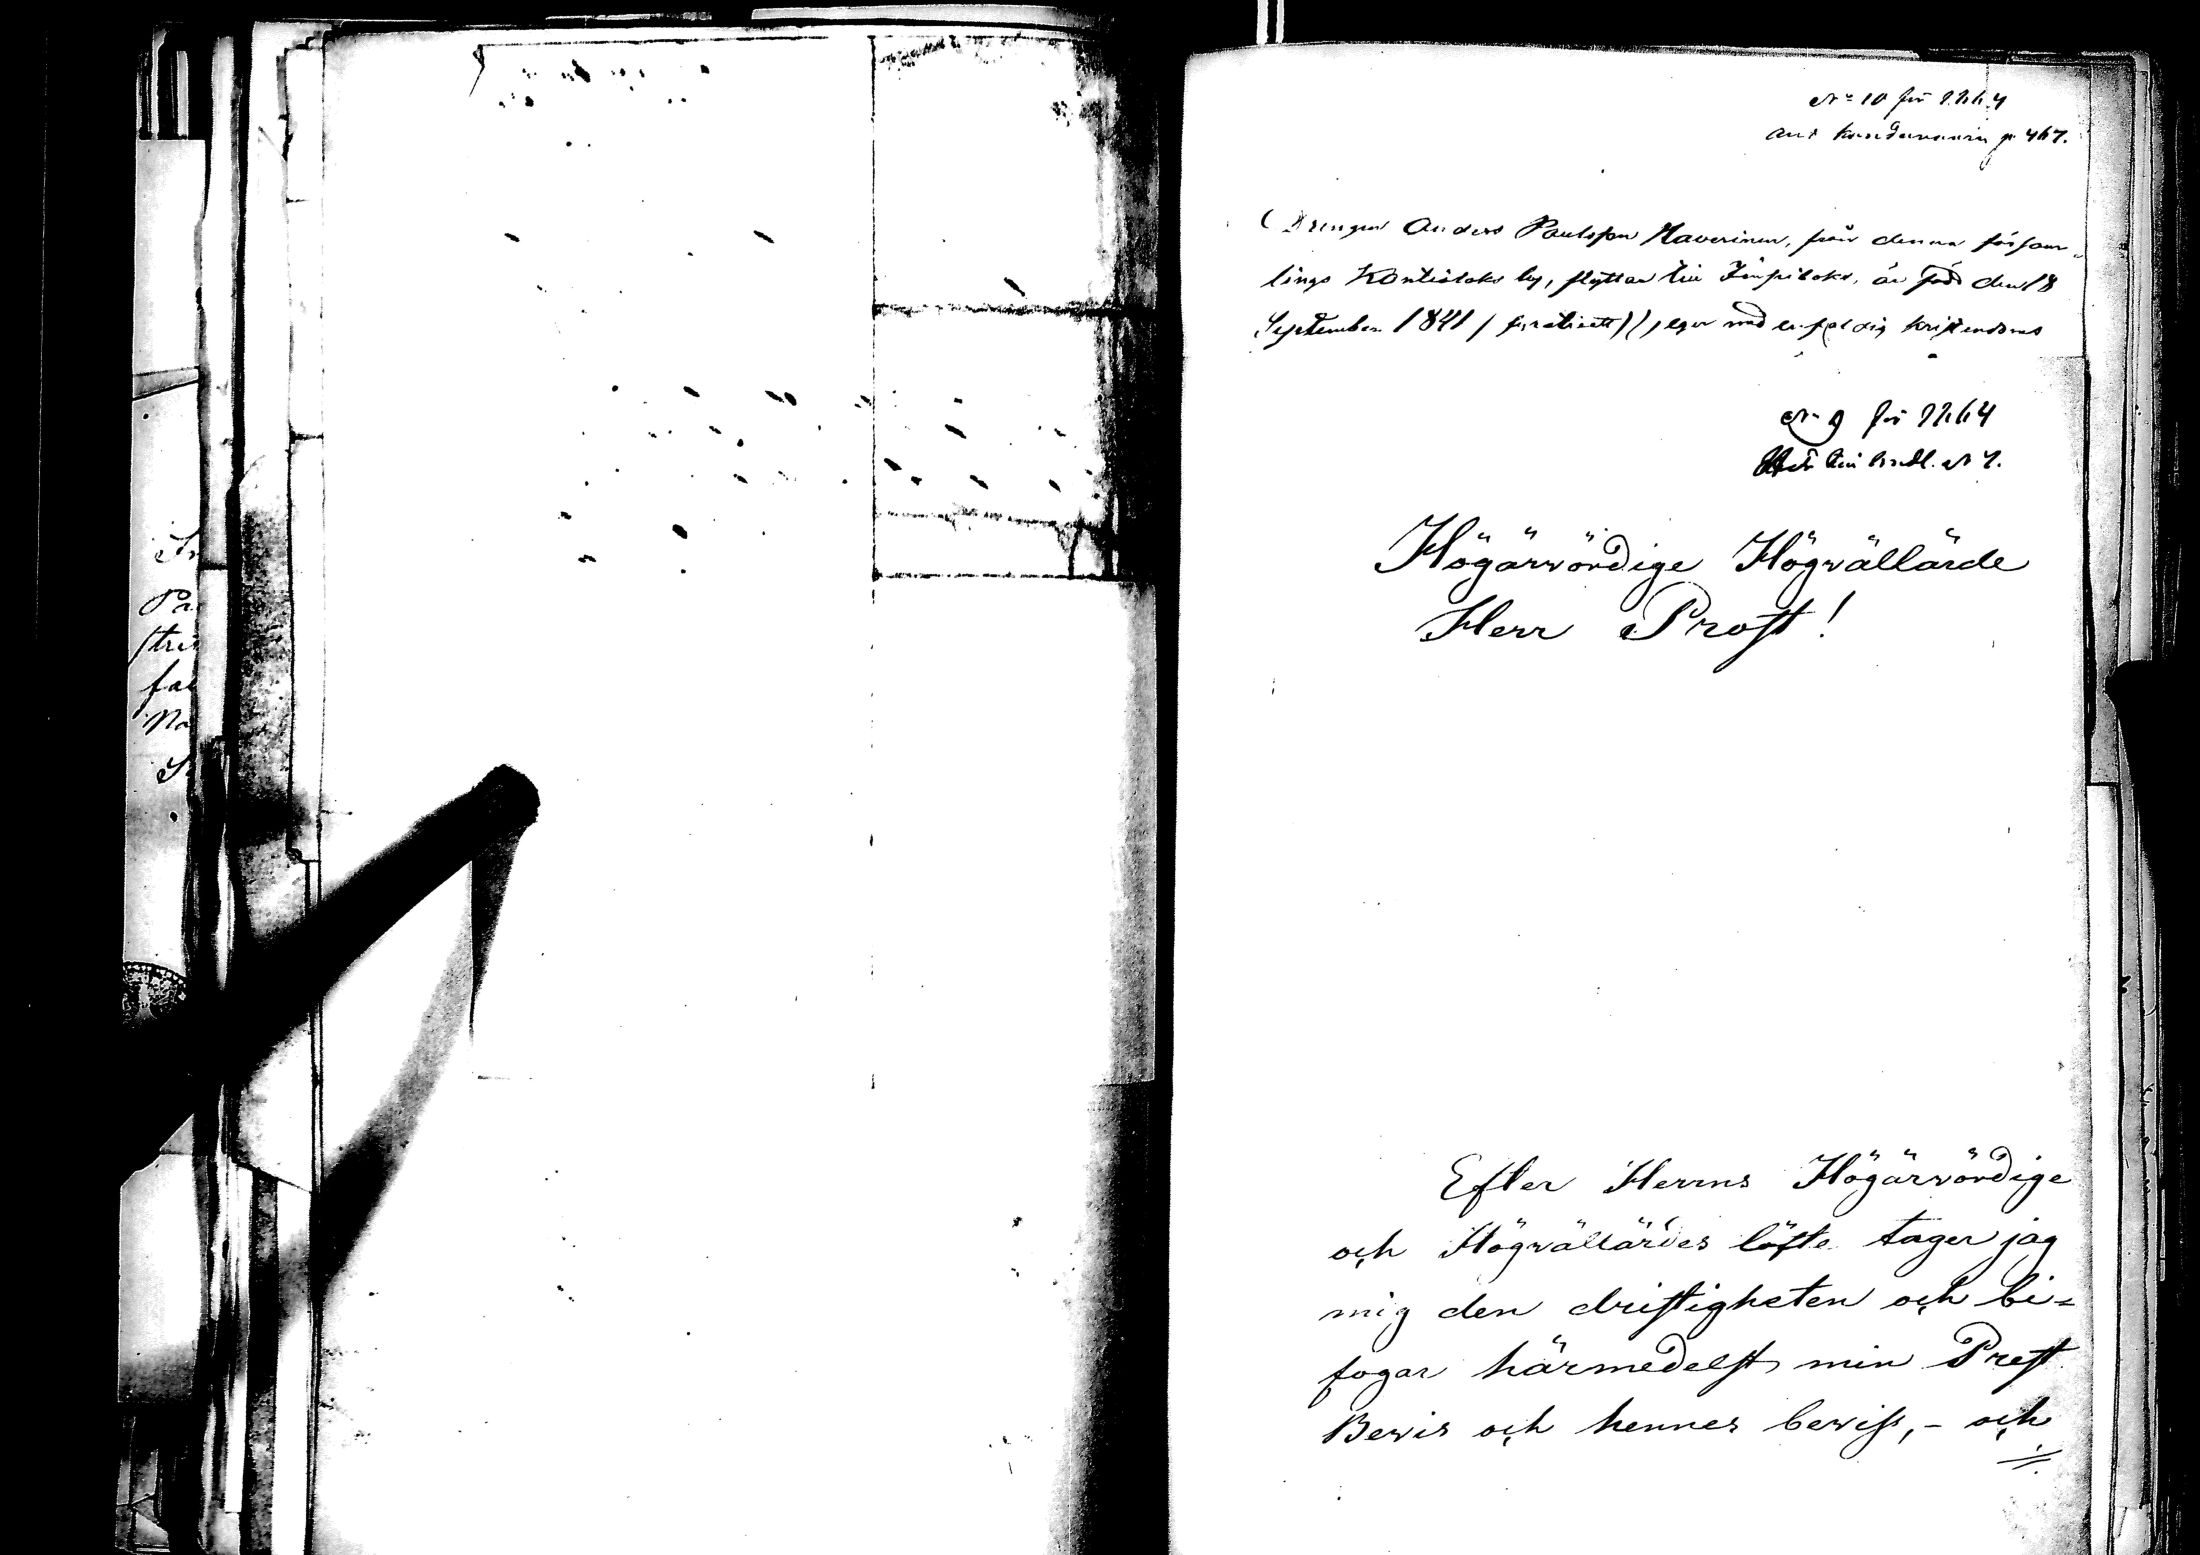 Sn
Pa
stri
fa
Na
S
No 10 för 1864
ant kommunion p 467.
Drengen Anders Paulsson Haverinen, från denna försam-
lings Kontiolaks by, flyttar tillImpilaks, är född den 18
September 1841 / fyratioett) eger med enfaldig kristendoms
No 9 för 1864
Högärvördige Högvällärde
Herr Prost!
Efter Herrns Högärvördige
och Högvällärdes löfte tager jag
mig den dristigheten och bi=
fogar härmedelst min Prest
Bevis och hennes beviss, - och